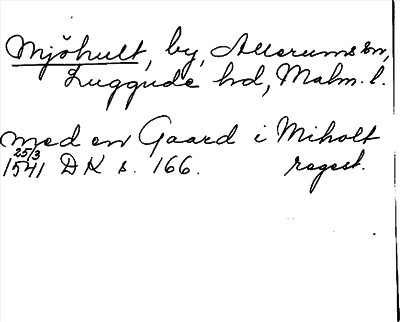 Mjöhult, by, Allerums sn,
Luggude hd, Malm. l.
med en Gaard i Miholt
25/3
1541 DK s. 166. regest.